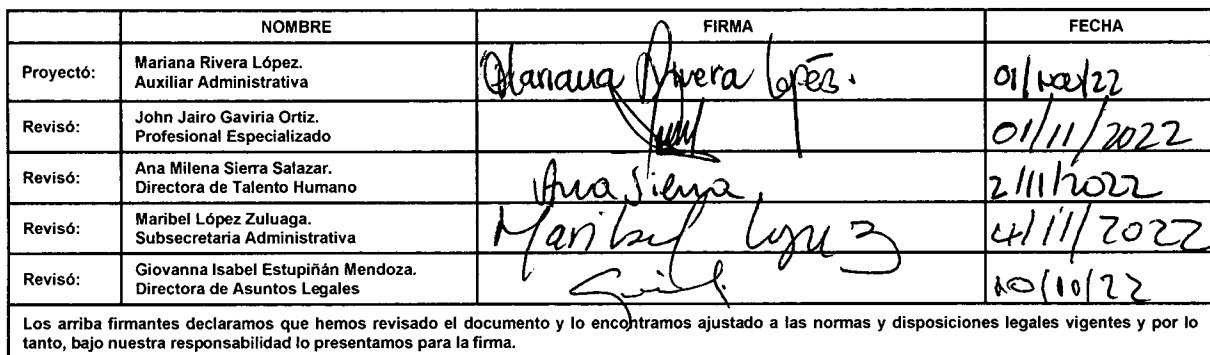 NOMBRE FIRMA FECHA
Proyectó: Mariana Rivera López. Auxiliar Administrativa Mariana Rivera López. 01/nov/22
Revisó: John Jairo Gaviria Ortiz. Profesional Especializado 01/11/2022
Revisó: Ana Milena Sierra Salazar. Directora de Talento Humano Ana Sierra 2/11/2022
Revisó: Maribel López Zuluaga. Subsecretaria Administrativa Maribel López Z 4/11/2022
Revisó: Giovanna Isabel Estupiñán Mendoza. Directora de Asuntos Legales 10/10/22
Los arriba firmantes declaramos que hemos revisado el documento y lo encontramos ajustado a las normas y disposiciones legales vigentes y por lo
tanto, bajo nuestra responsabilidad lo presentamos para la firma.